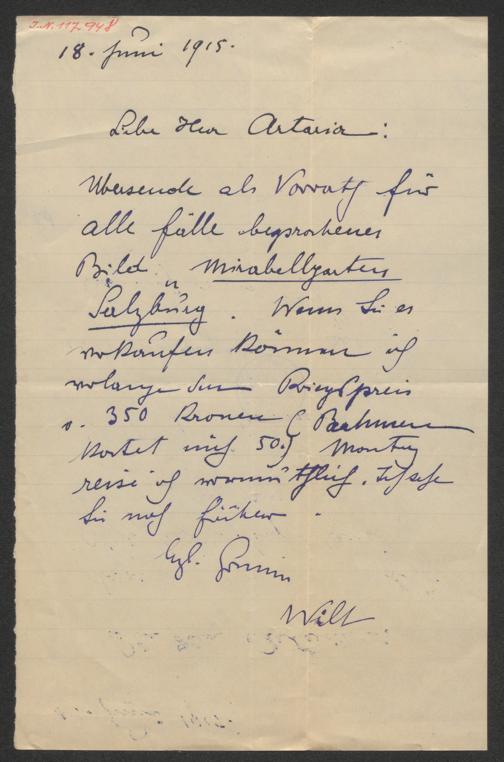 J.N. 117.948
18. Juni 1915.
Liebe Herr Artaria:
Übersende als Vorrath für
alle fälle besprochenes
Bild "Mirabellgarten
Salzburg. Wenn Sie es
verkaufen können ich
verlange den Kriegspreis
v. 350 Kronen (Rahmen
kostet mich 50.) Montag
reise ich vermuthlich. Ich sehe
Sie noch früher.
Wilt